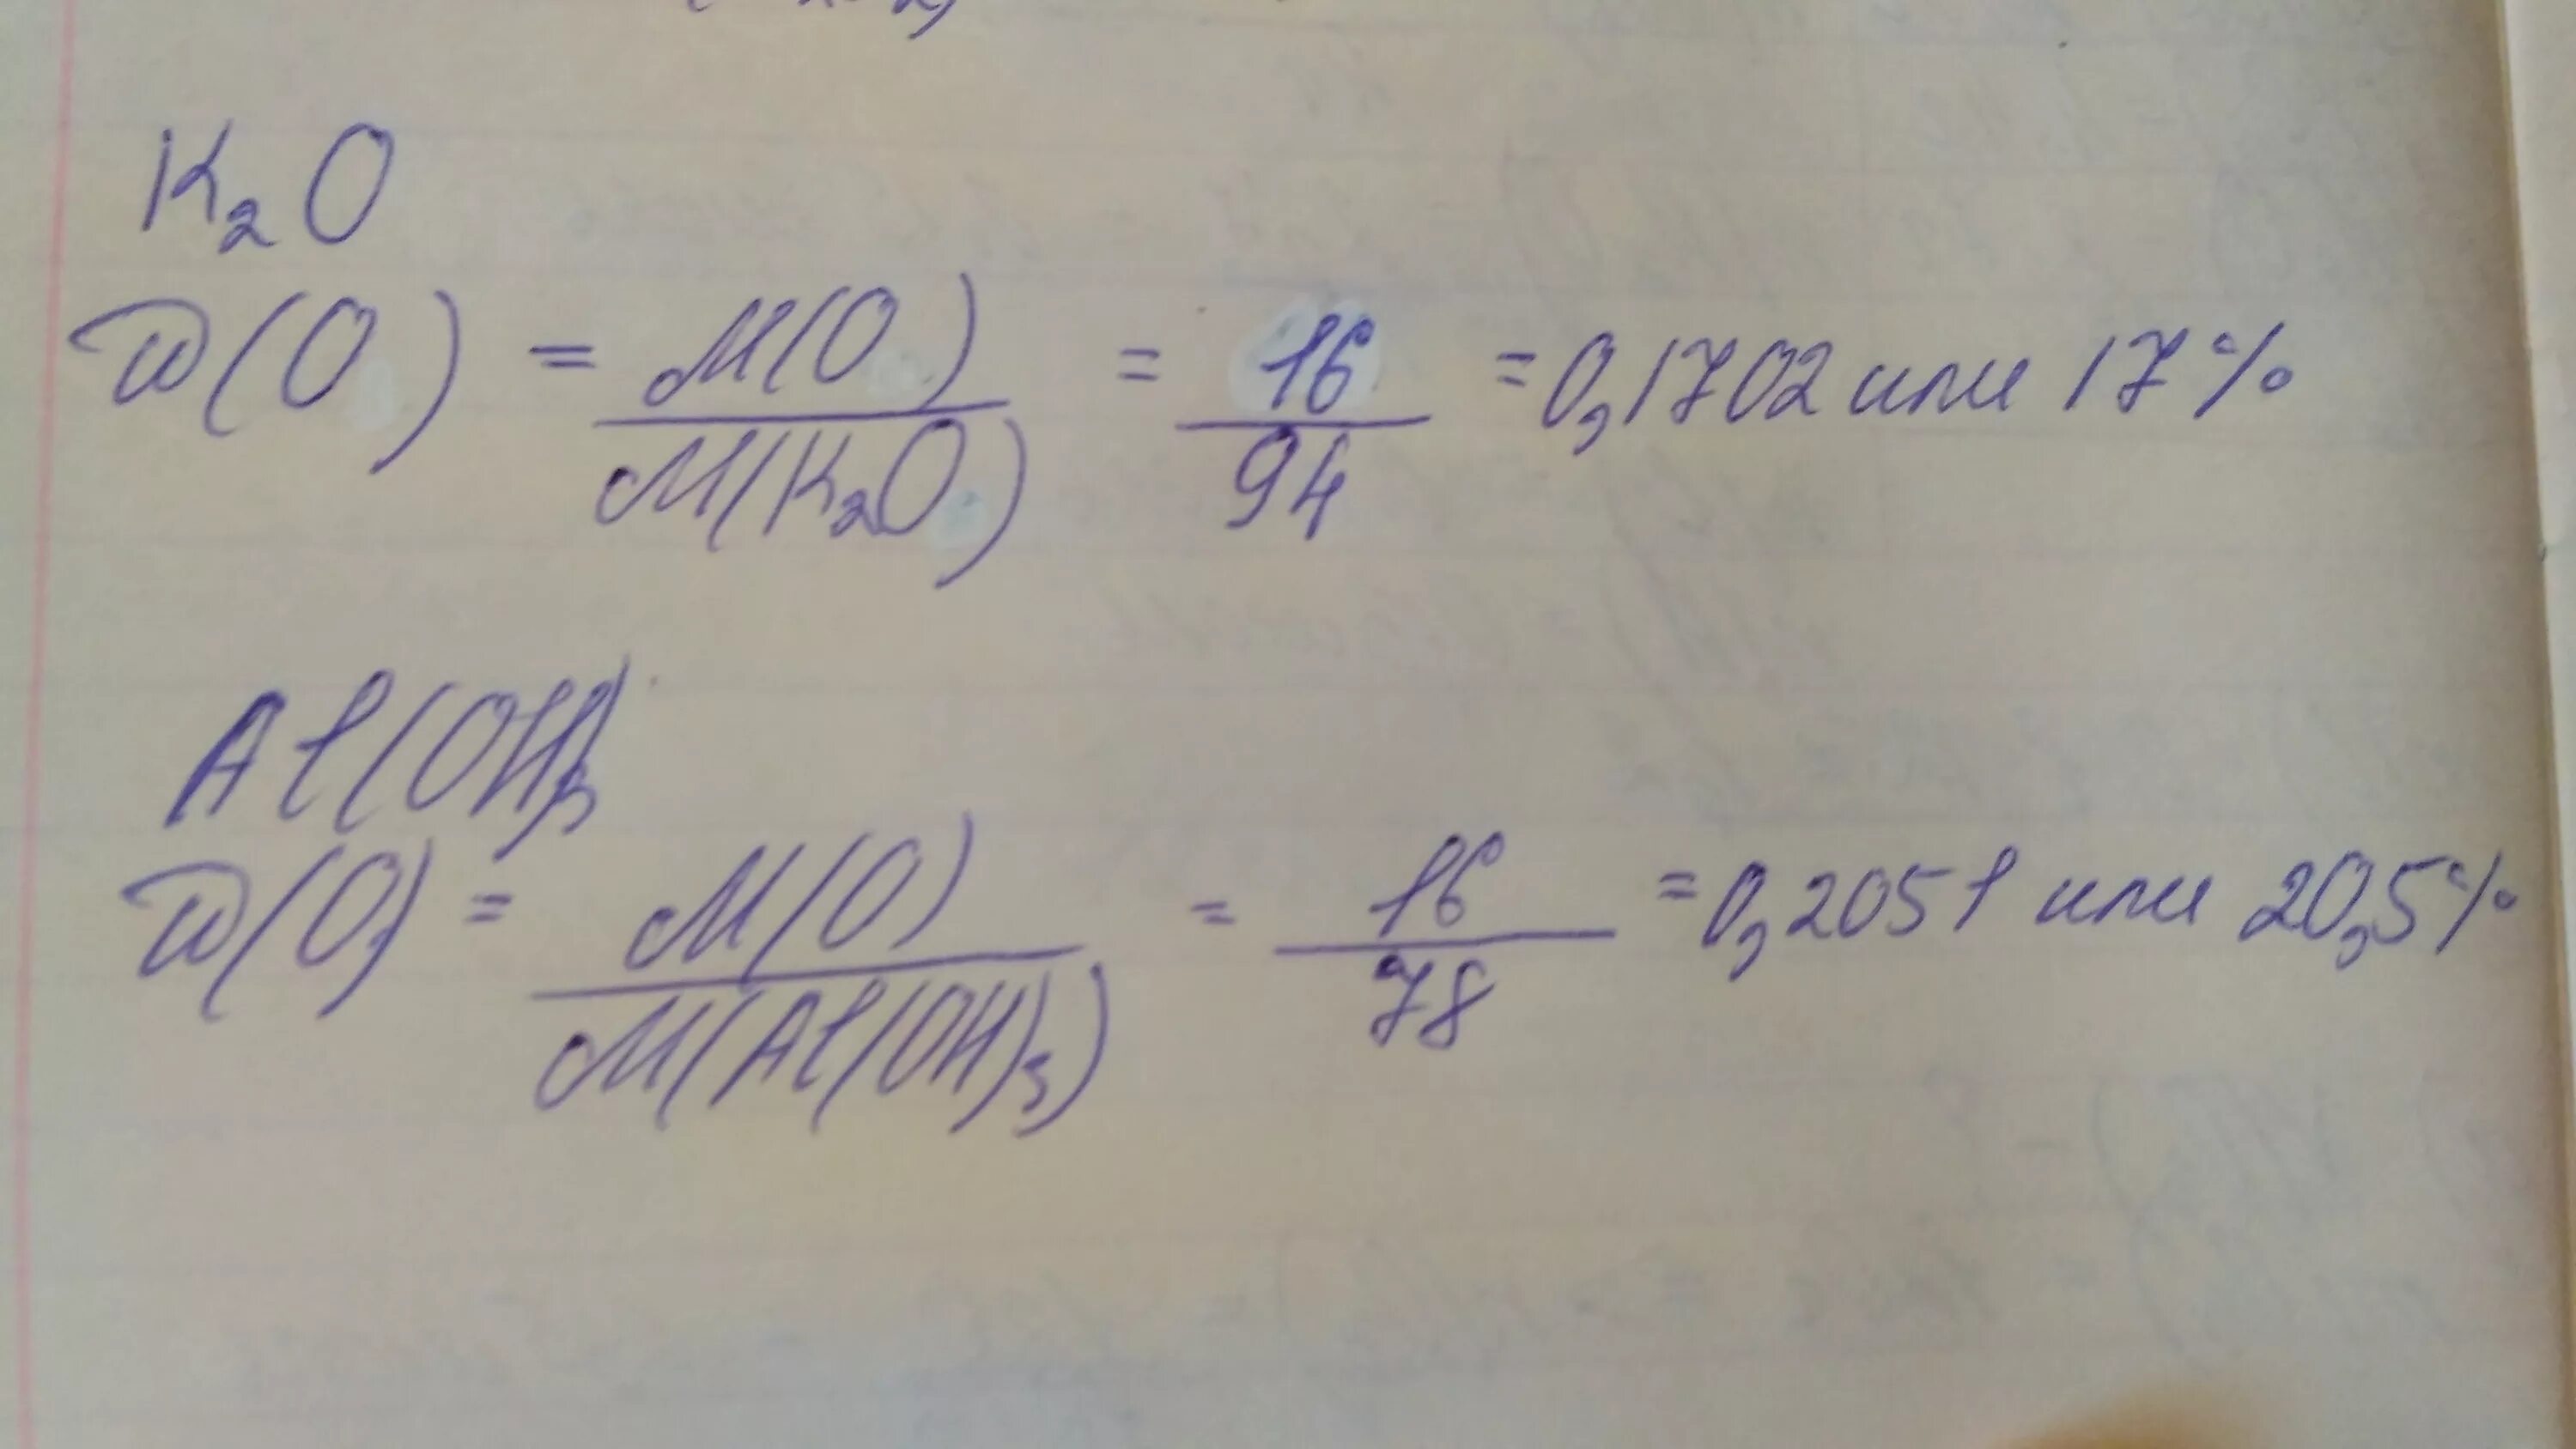 K₂O
W(O) = M(O) / M(K₂O) = 16 / 94 = 0,1702 или 17%
Al(OH)₃
W(O) = M(O) / M(Al(OH)₃) = 16 / 78 = 0,2051 или 20,5%